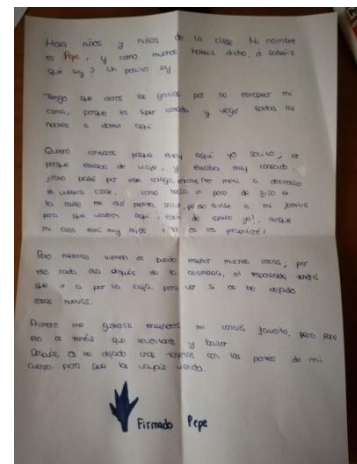 Hola niños y niñas de la clase. Mi nombre
es Pepe, y como muchos habéis dicho, ¿a sabéis
qué soy? Un pollito soy.
Tengo que daros las gracias por no estropear mi
cama, porque es súper cómoda y vengo todas las
noches a dormir aquí.
Quiero contaros porque estoy aquí yo solito; es
porque estaba de viaje, y estaba muy cansado,
pasé por este colegio, me a descansar
a vuestra clase, como hacía un poco de frío en
la calle me dio
para que aquí
mi casa
Pero mientras vienen os puedo enseñar muchas cosas, por
eso cada día después de la asamblea, el responsable tendrá
que ir a por la caja, para ver si os he dejado
cosas nuevas.
Primero me gustaría enseñaros mi canción favorita, pero para
eso os tenéis que levantar y bailar
Después os he dejado unas tarjetas con las partes de mi
cuerpo para que las vayáis viendo.
Firmado Pepe